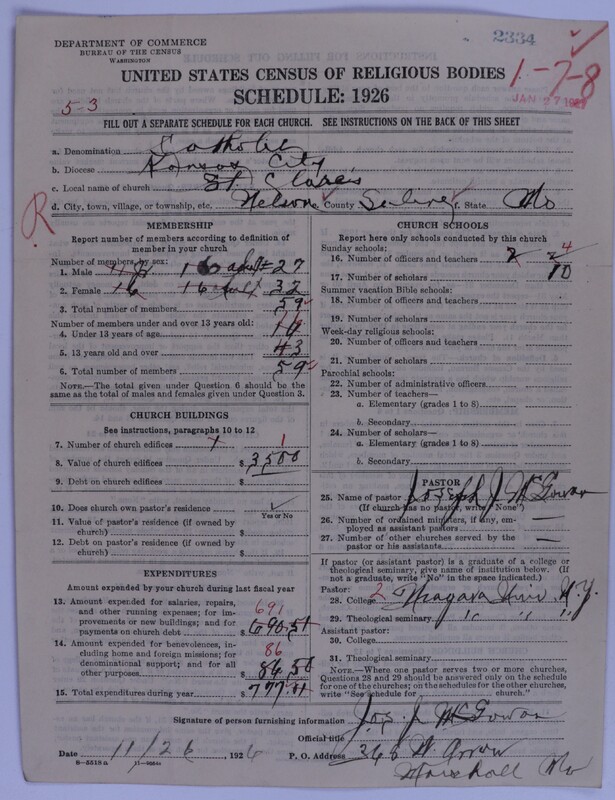 DEPARTMENT OF COMMERCE
BUREAU OF THE CENSUS
WASHINGTON
2334
UNITED STATES CENSUS OF RELIGIOUS BODIES
1-7-8
SCHEDULE: 1926
JAN 27
5-3
FILL OUT A SEPARATE SCHEDULE FOR EACH CHURCH. SEE INSTRUCTIONS ON THE BACK OF THIS SHEET
a. Denomination Catholic
b. Diocese Kansas City
c. Local name of church St Clare's
d. City, town, village, or township, etc. Nelson e. County Saline f. State Mo
R
MEMBERSHIP
Report number of members according to definition of member in your church
Number of members by sex:
1. Male 27
2. Female 16 16 32
3. Total number of members 59
Number of members under and over 13 years old:
4. Under 13 years of age 16
5. 13 years old and over 43
6. Total number of members 59
NOTE.—The total given under Question 6 should be the same as the total of males and females given under Question 3.
CHURCH BUILDINGS
See instructions, paragraphs 10 to 12
7. Number of church edifices 1
8. Value of church edifices $ 3,500
9. Debt on church edifices $
10. Does church own pastor's residence?
Yes or No
11. Value of pastor's residence (if owned by church) $
12. Debt on pastor's residence (if owned by church) $
EXPENDITURES
Amount expended by your church during last fiscal year
13. Amount expended for salaries, repairs, and other running expenses; for improvements or new buildings; and for payments on church debt $ 690.51
691
14. Amount expended for benevolences, including home and foreign missions; for denominational support; and for all other purposes $ 86.50
86
15. Total expenditures during year $ 777.01
CHURCH SCHOOLS
Report here only schools conducted by this church
Sunday schools:
16. Number of officers and teachers 2 2 4
17. Number of scholars 10
Summer vacation Bible schools:
18. Number of officers and teachers
19. Number of scholars
Week-day religious schools:
20. Number of officers and teachers
21. Number of scholars
Parochial schools:
22. Number of administrative officers
23. Number of teachers—
a. Elementary (grades 1 to 8)
b. Secondary
24. Number of scholars—
a. Elementary (grades 1 to 8)
b. Secondary
PASTOR
25. Name of pastor Joseph J McGowan
(If church has no pastor, write "None")
26. Number of ordained ministers, if any, employed as assistant pastors —
27. Number of other churches served by the pastor or his assistants —
If pastor (or assistant pastor) is a graduate of a college or theological seminary, give name of institution below. (If not a graduate, write "No" in the space indicated.)
Pastor:
28. College 2 Niagara Univ N.Y.
29. Theological seminary " " " "
Assistant pastor:
30. College
31. Theological seminary
NOTE.—Where one pastor serves two or more churches, Questions 28 and 29 should be answered only on the schedule for one of the churches; on the schedules for the other churches, write "See schedule for church."
Signature of person furnishing information Jos. J. McGowan
Official title
Date 11/26 1926 P. O. Address 368 W Arrow
Marshall Mo
8-5518a